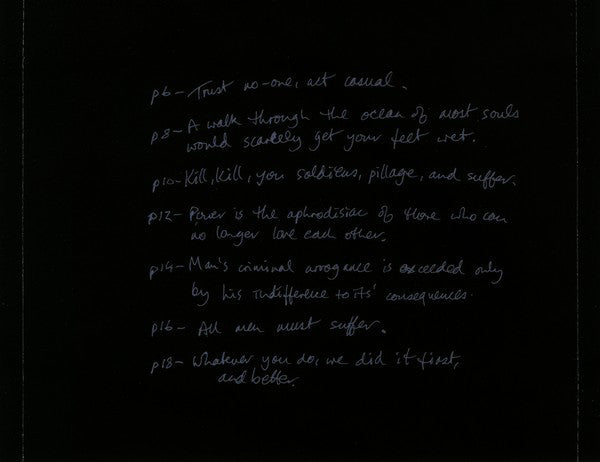 p6- Trust no-one, act casual.
p8- A walk through the ocean of most souls
would scarcely get your feet wet.
p10- Kill, kill, you soldiers, pillage, and suffer.
p12- Power is the aphrodisiac of those who can
no longer love each other.
p14- Man's criminal arrogance is exceeded only
by his indifference to its' consequences.
p16- All men must suffer.
p18- Whatever you do, we did it first,
and better.